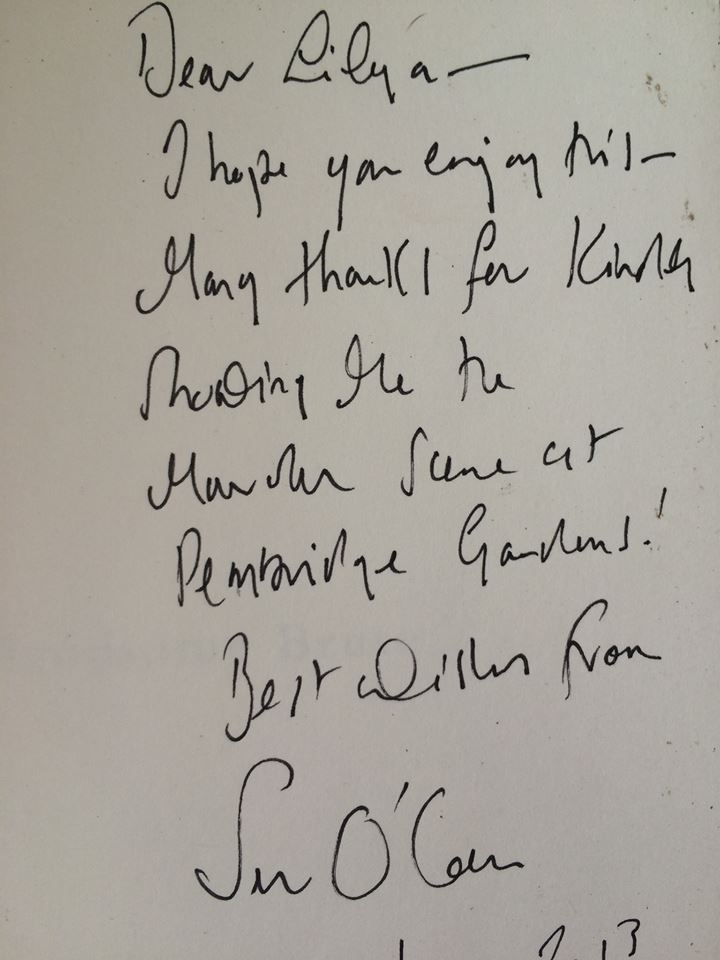 Dear Lilya —
I hope you enjoy this —
Many thanks for kindly
showing me the
Murder Scene at
Pembridge Gardens!
Best wishes from
O'C
2013